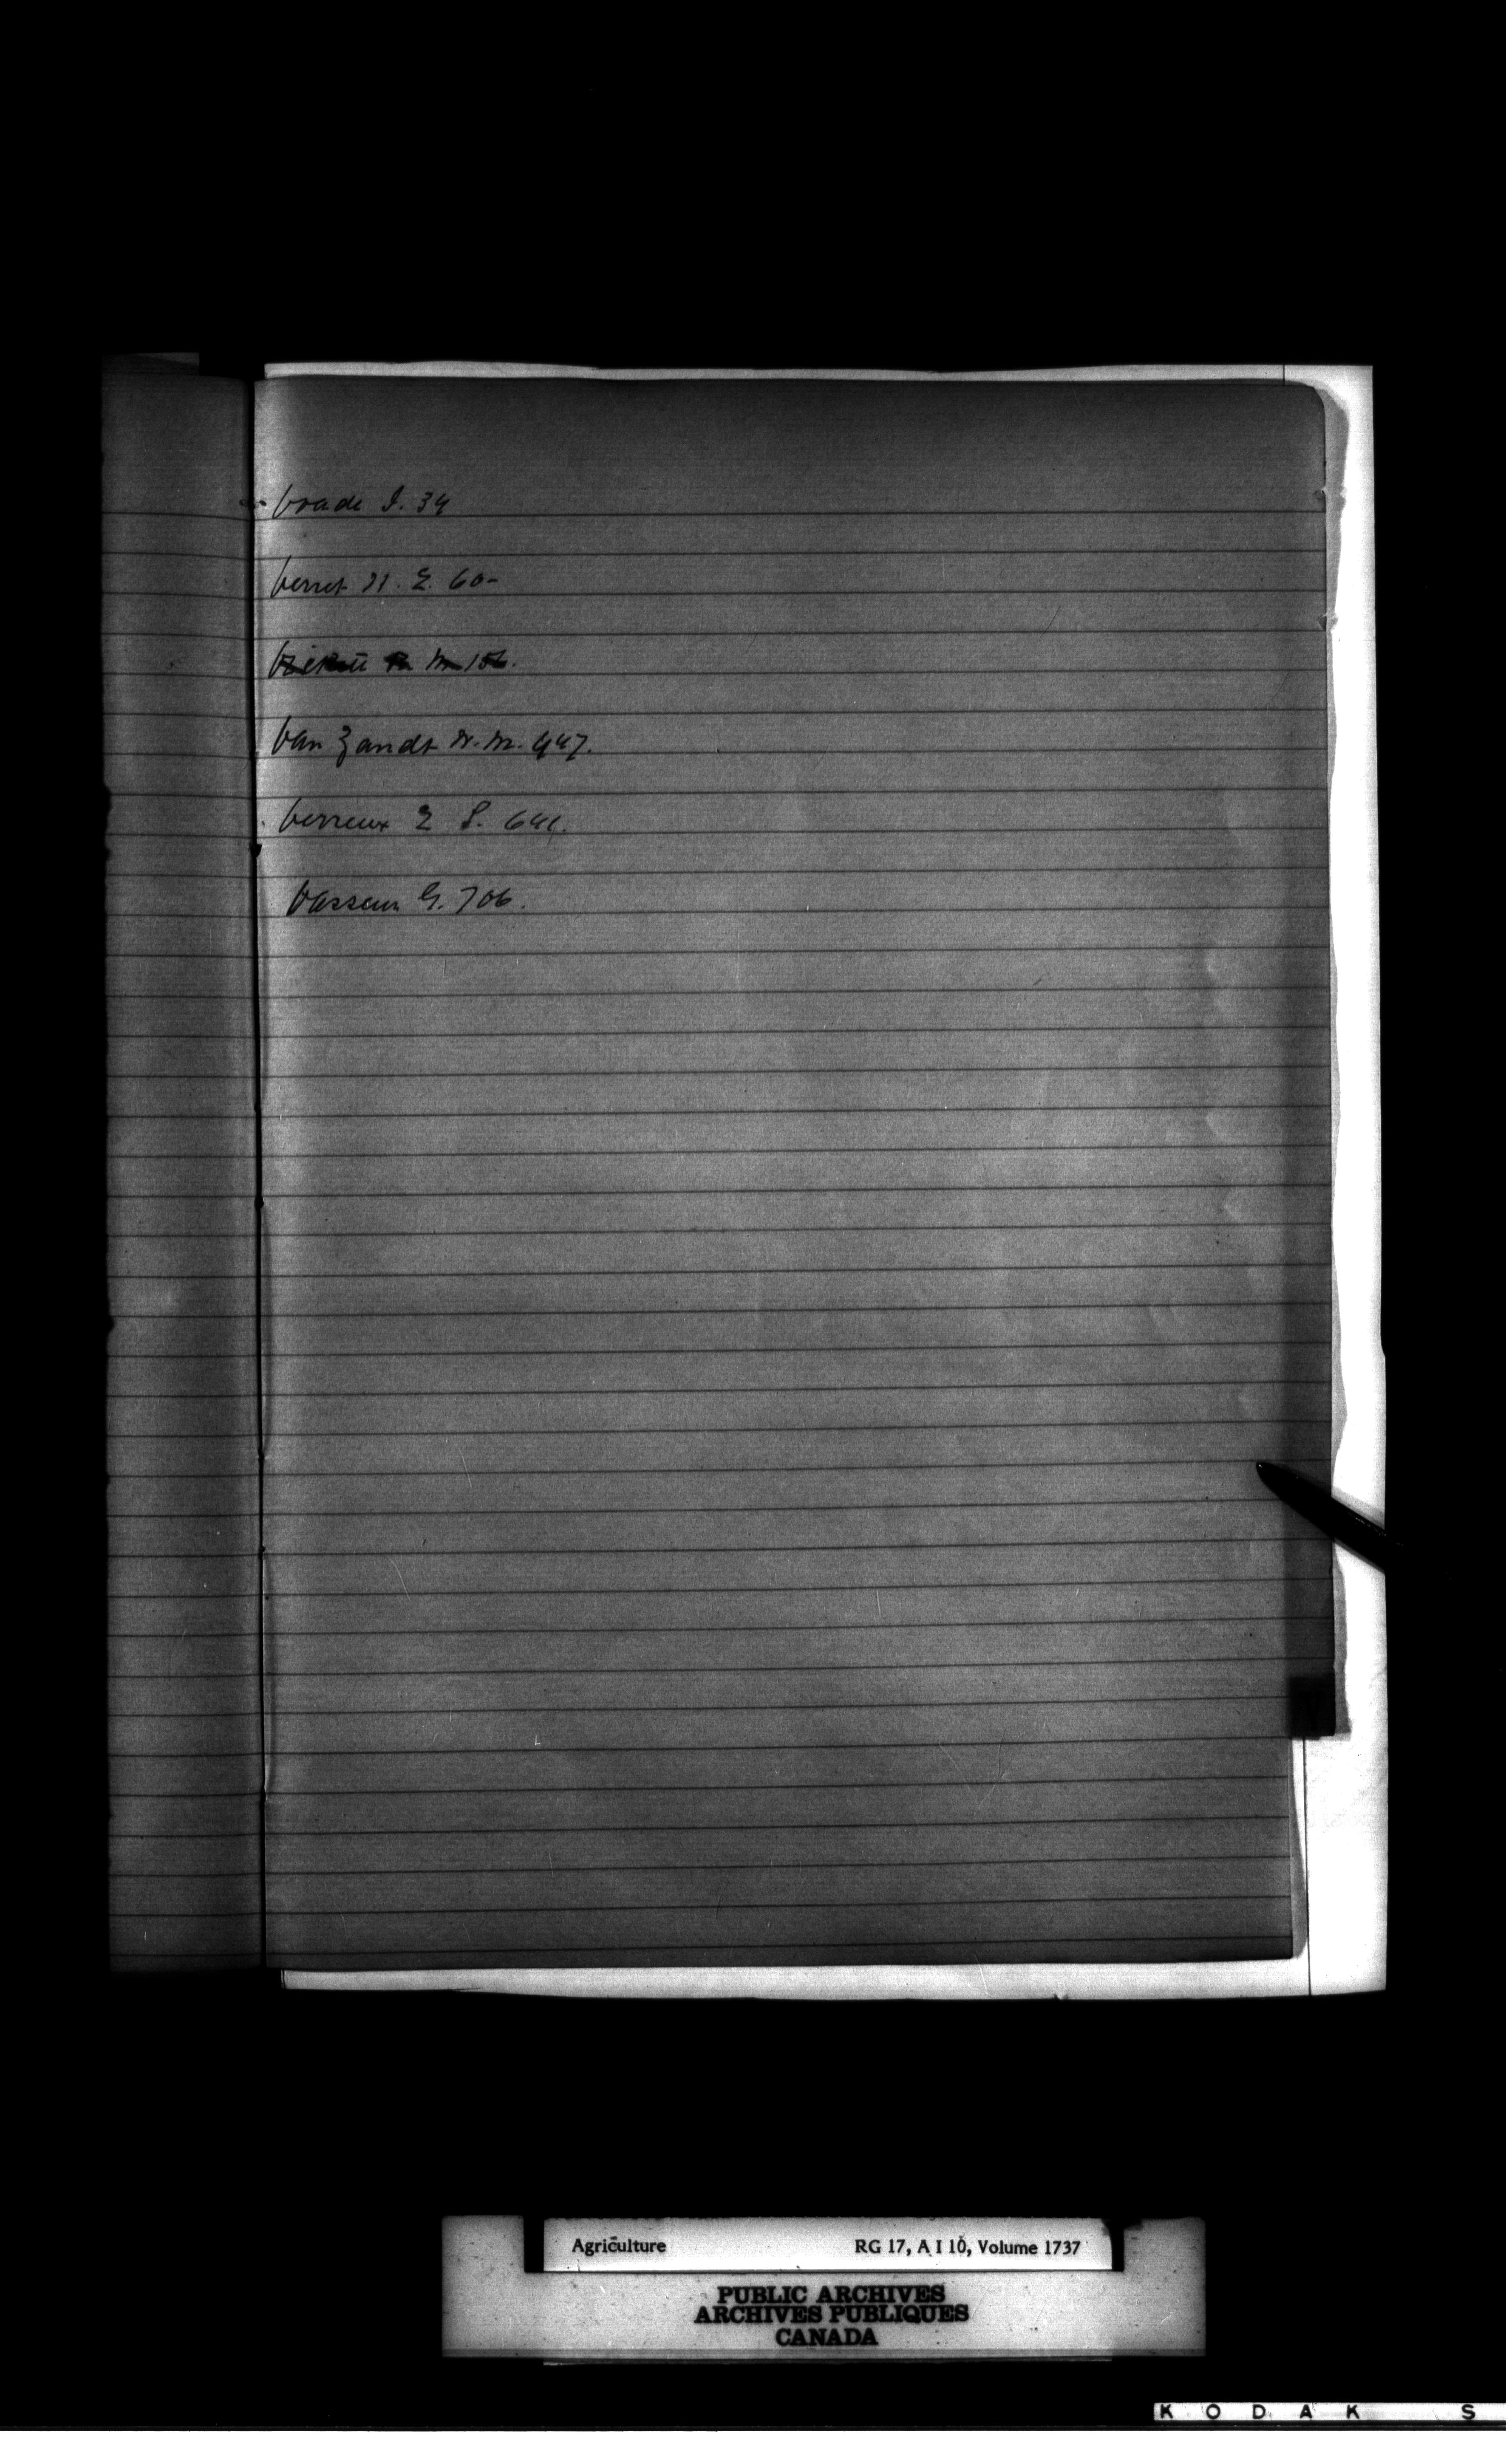 Voade I. 34
Verret N. E. 60-
Van Zandt W. M. 447.
Verreux E S. 641.
Vasseur G. 706.
V
Agriculture RG 17, A I 10, Volume 1737
PUBLIC ARCHIVES
ARCHIVES PUBLIQUES
CANADA
KODAK S